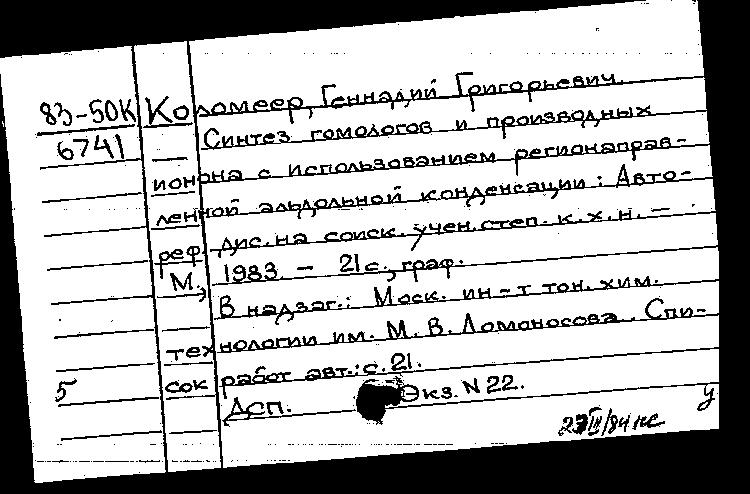 83-50К Коломеер, Геннадий Григорьевич.
6741 Синтез гомологов и производных
ионона с использованием регионаправ-
ленной альдольной конденсации: Авто-
реф. дис. на соиск. учен. степ. к.х.н. –
М., 1983. – 21 с., граф.
В надзаг.: Моск. ин-т тон. хим.
технологии им. М. В. Ломоносова. Спи-
5 сок работ авт.: с. 21.
ДСП. Экз. N 22.
у